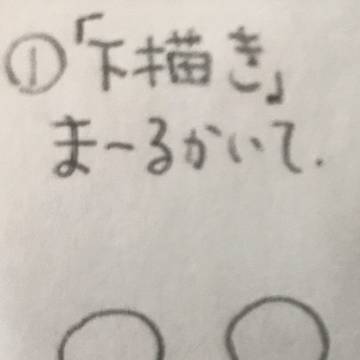 ①「下描き」
まーるかいて.